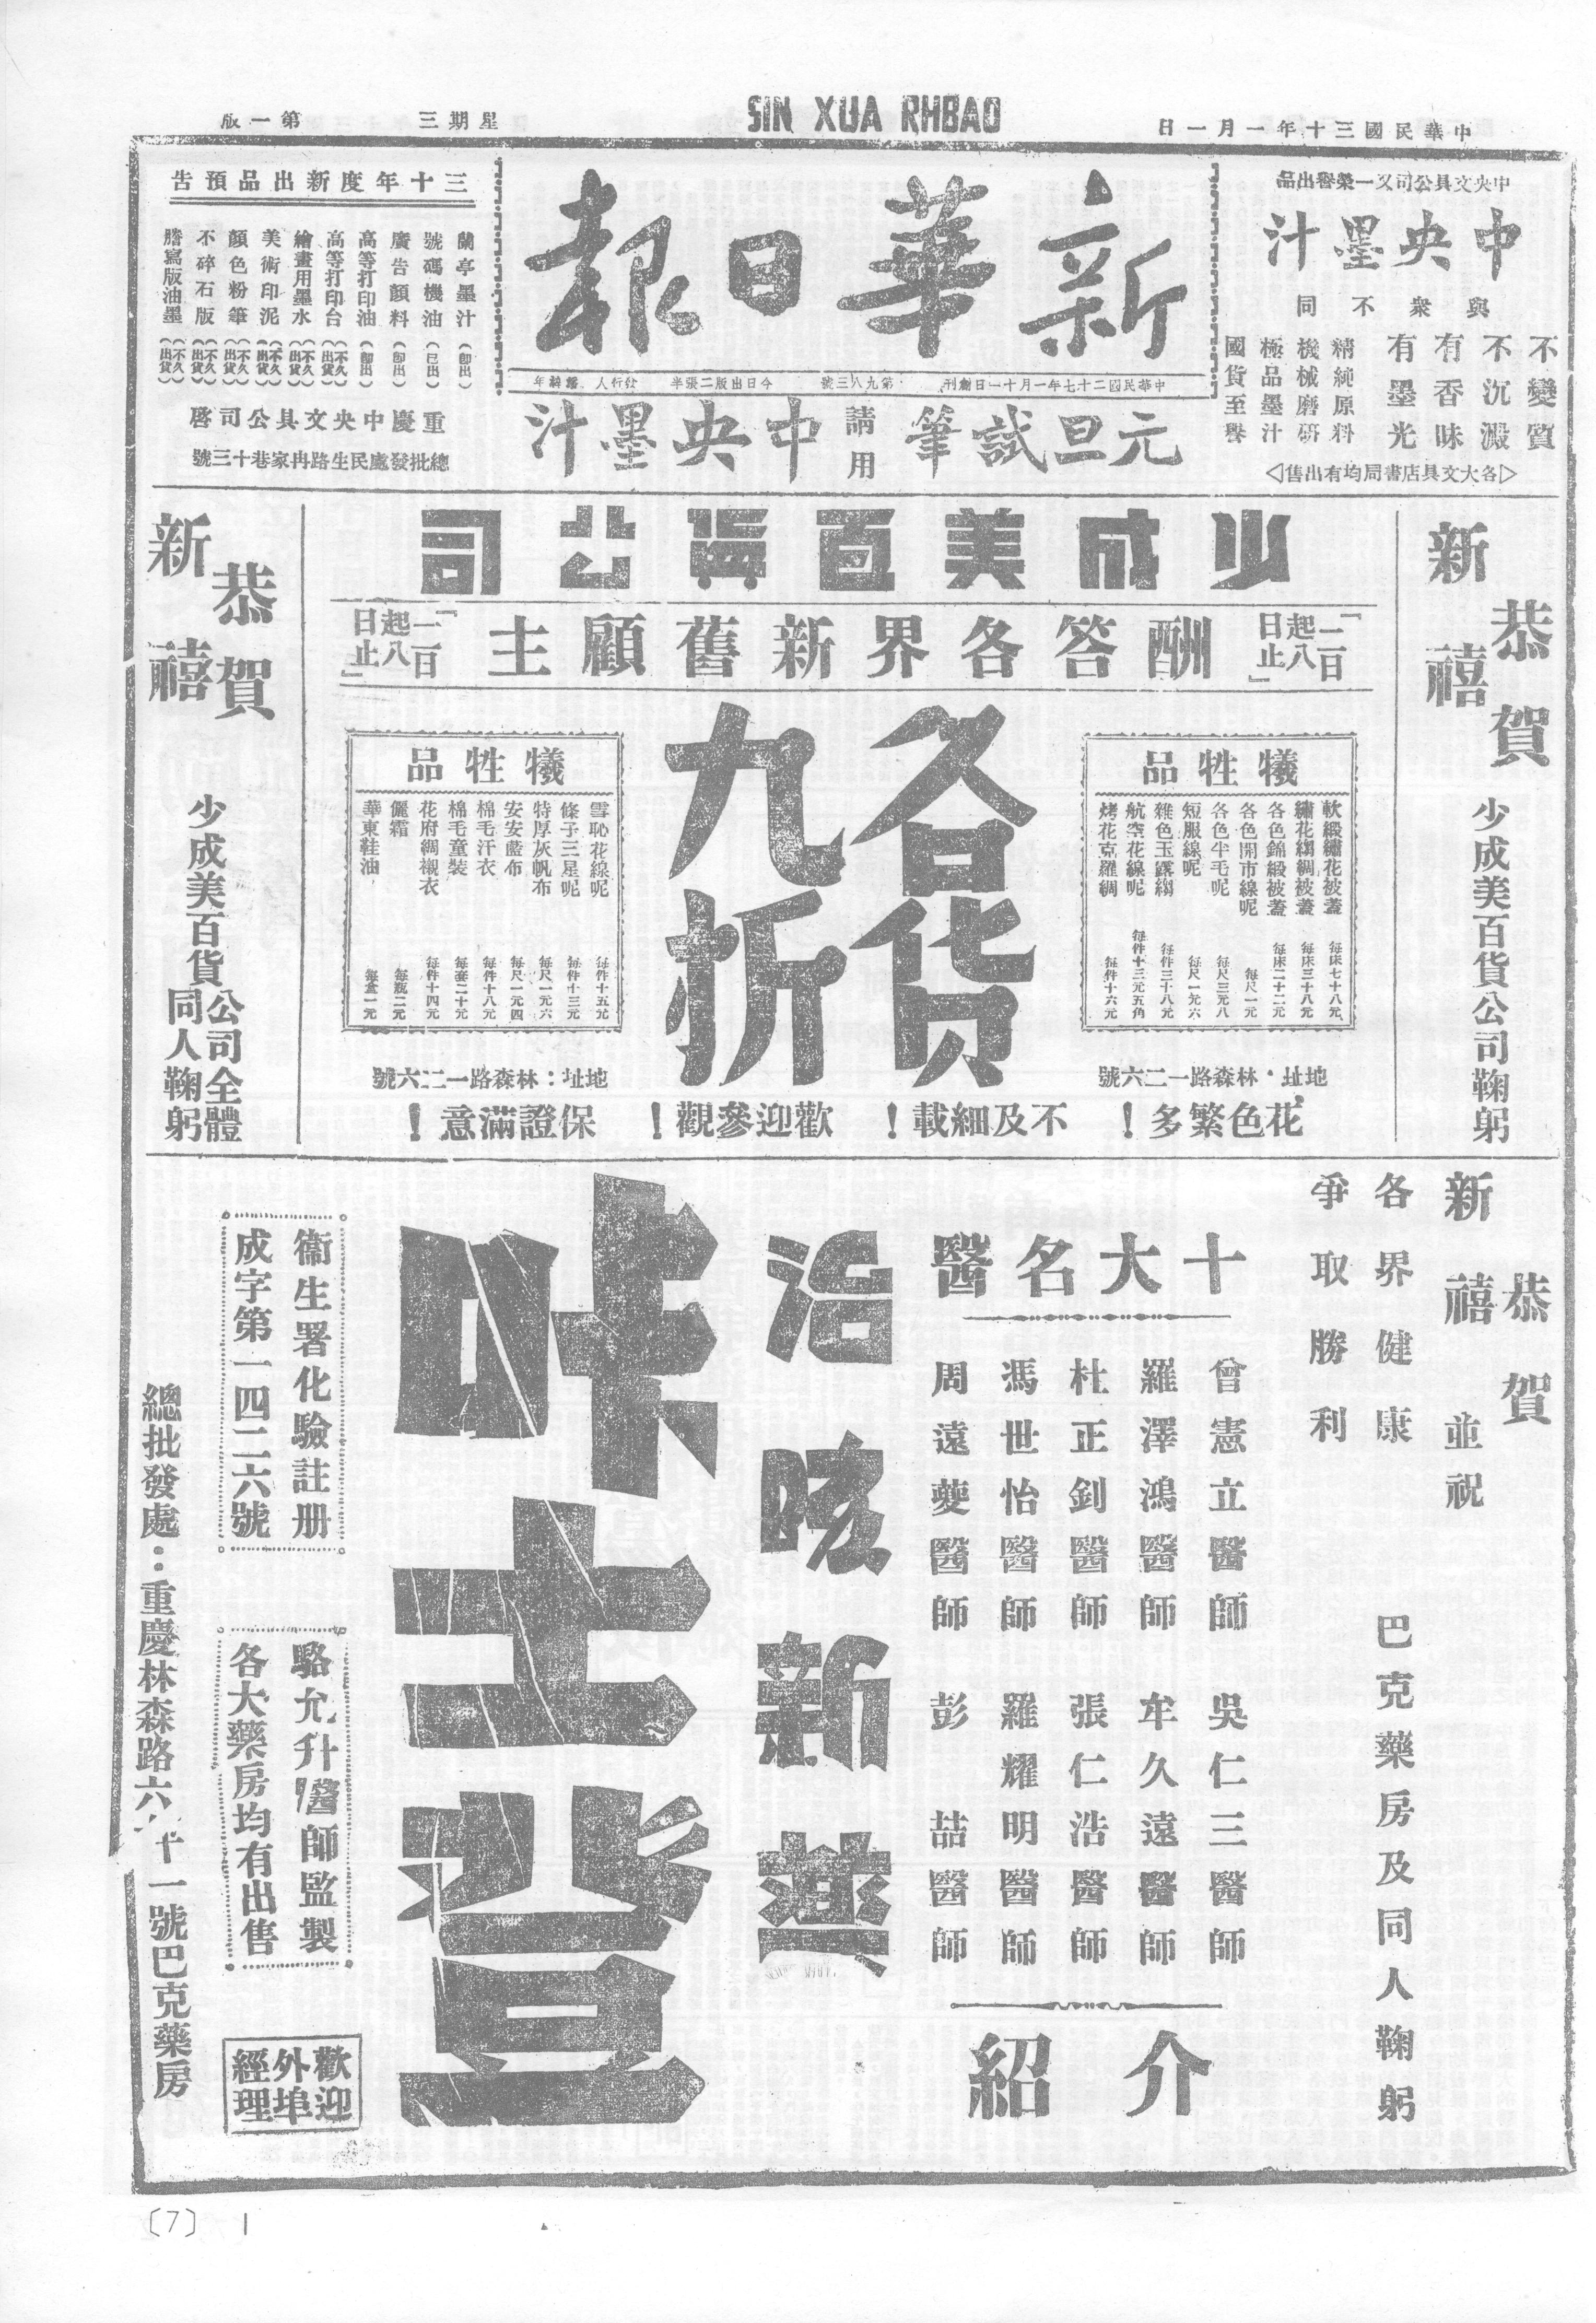 中華民國三十年一月一日
SIN XUA RHBAO
星期三
第一版
中央文具公司又一榮譽出品
中央墨汁
與衆不同
不變質
不沉澱
有香味
有墨光
精純原料
機械磨研
極品墨汁
國貨至譽
▷各大文具店書局均有出售◁
新華日報
中華民國二十七年一月十一日創刊
第九八三號
今日出版二張半
發行人 潘梓年
元旦試筆
請用
中央墨汁
三十年度新出品預告
蘭亭墨汁(即出)
號碼機油(已出)
廣告顏料(即出)
高等打印油(即出)
高等打印台(不久出貨)
繪畫用墨水(不久出貨)
美術印泥(不久出貨)
顏色粉筆(不久出貨)
不碎石版(不久出貨)
謄寫版油墨(不久出貨)
重慶中央文具公司啓
總批發處民生路冉家巷十三號
恭賀
新禧
少成美百貨公司鞠躬
少成美百貨公司
「一日起八日止」
酬答各界新舊顧主
「一日起八日止」
犧牲品
軟緞繡花被蓋 每床七十八元
繡花縐綢被蓋 每床三十八元
各色錦緞被蓋 每床二十二元
各色開市線呢 每尺一元
各色半毛呢 每尺三元八
短服線呢 每尺一元六
雜色玉露縐 每件三十八元
航空花線呢 每件十三元五角
烤花克羅綢 每件十六元
地址：林森路一二六號
各貨
九折
犧牲品
雪恥花線呢 每件十五元
條子三星呢 每件十三元
特厚灰帆布 每尺一元六
安安藍布 每尺一元四
棉毛汗衣 每件十八元
棉毛童裝 每套二十元
花府綢襯衣 每件十四元
儷霜 每瓶二元
華東鞋油 每盒一元
地址：林森路一二六號
花色繁多！
不及細載！
歡迎參觀！
保證滿意！
恭賀
新禧
少成美百貨公司全體同人鞠躬
恭賀
新禧
並祝
各界健康
爭取勝利
巴克藥房及同人鞠躬
十大名醫
曾憲立醫師 吳仁三醫師
羅澤鴻醫師 牟久遠醫師
杜正釗醫師 張仁浩醫師
馮世怡醫師 羅耀明醫師
周遠夔醫師 彭喆醫師
介紹
治咳新藥
咔士登
衞生署化驗註册
成字第一四二六號
駱允升醫師監製
各大藥房均有出售
歡迎
外埠
經理
總批發處：重慶林森路六十一號巴克藥房
〔7〕 1